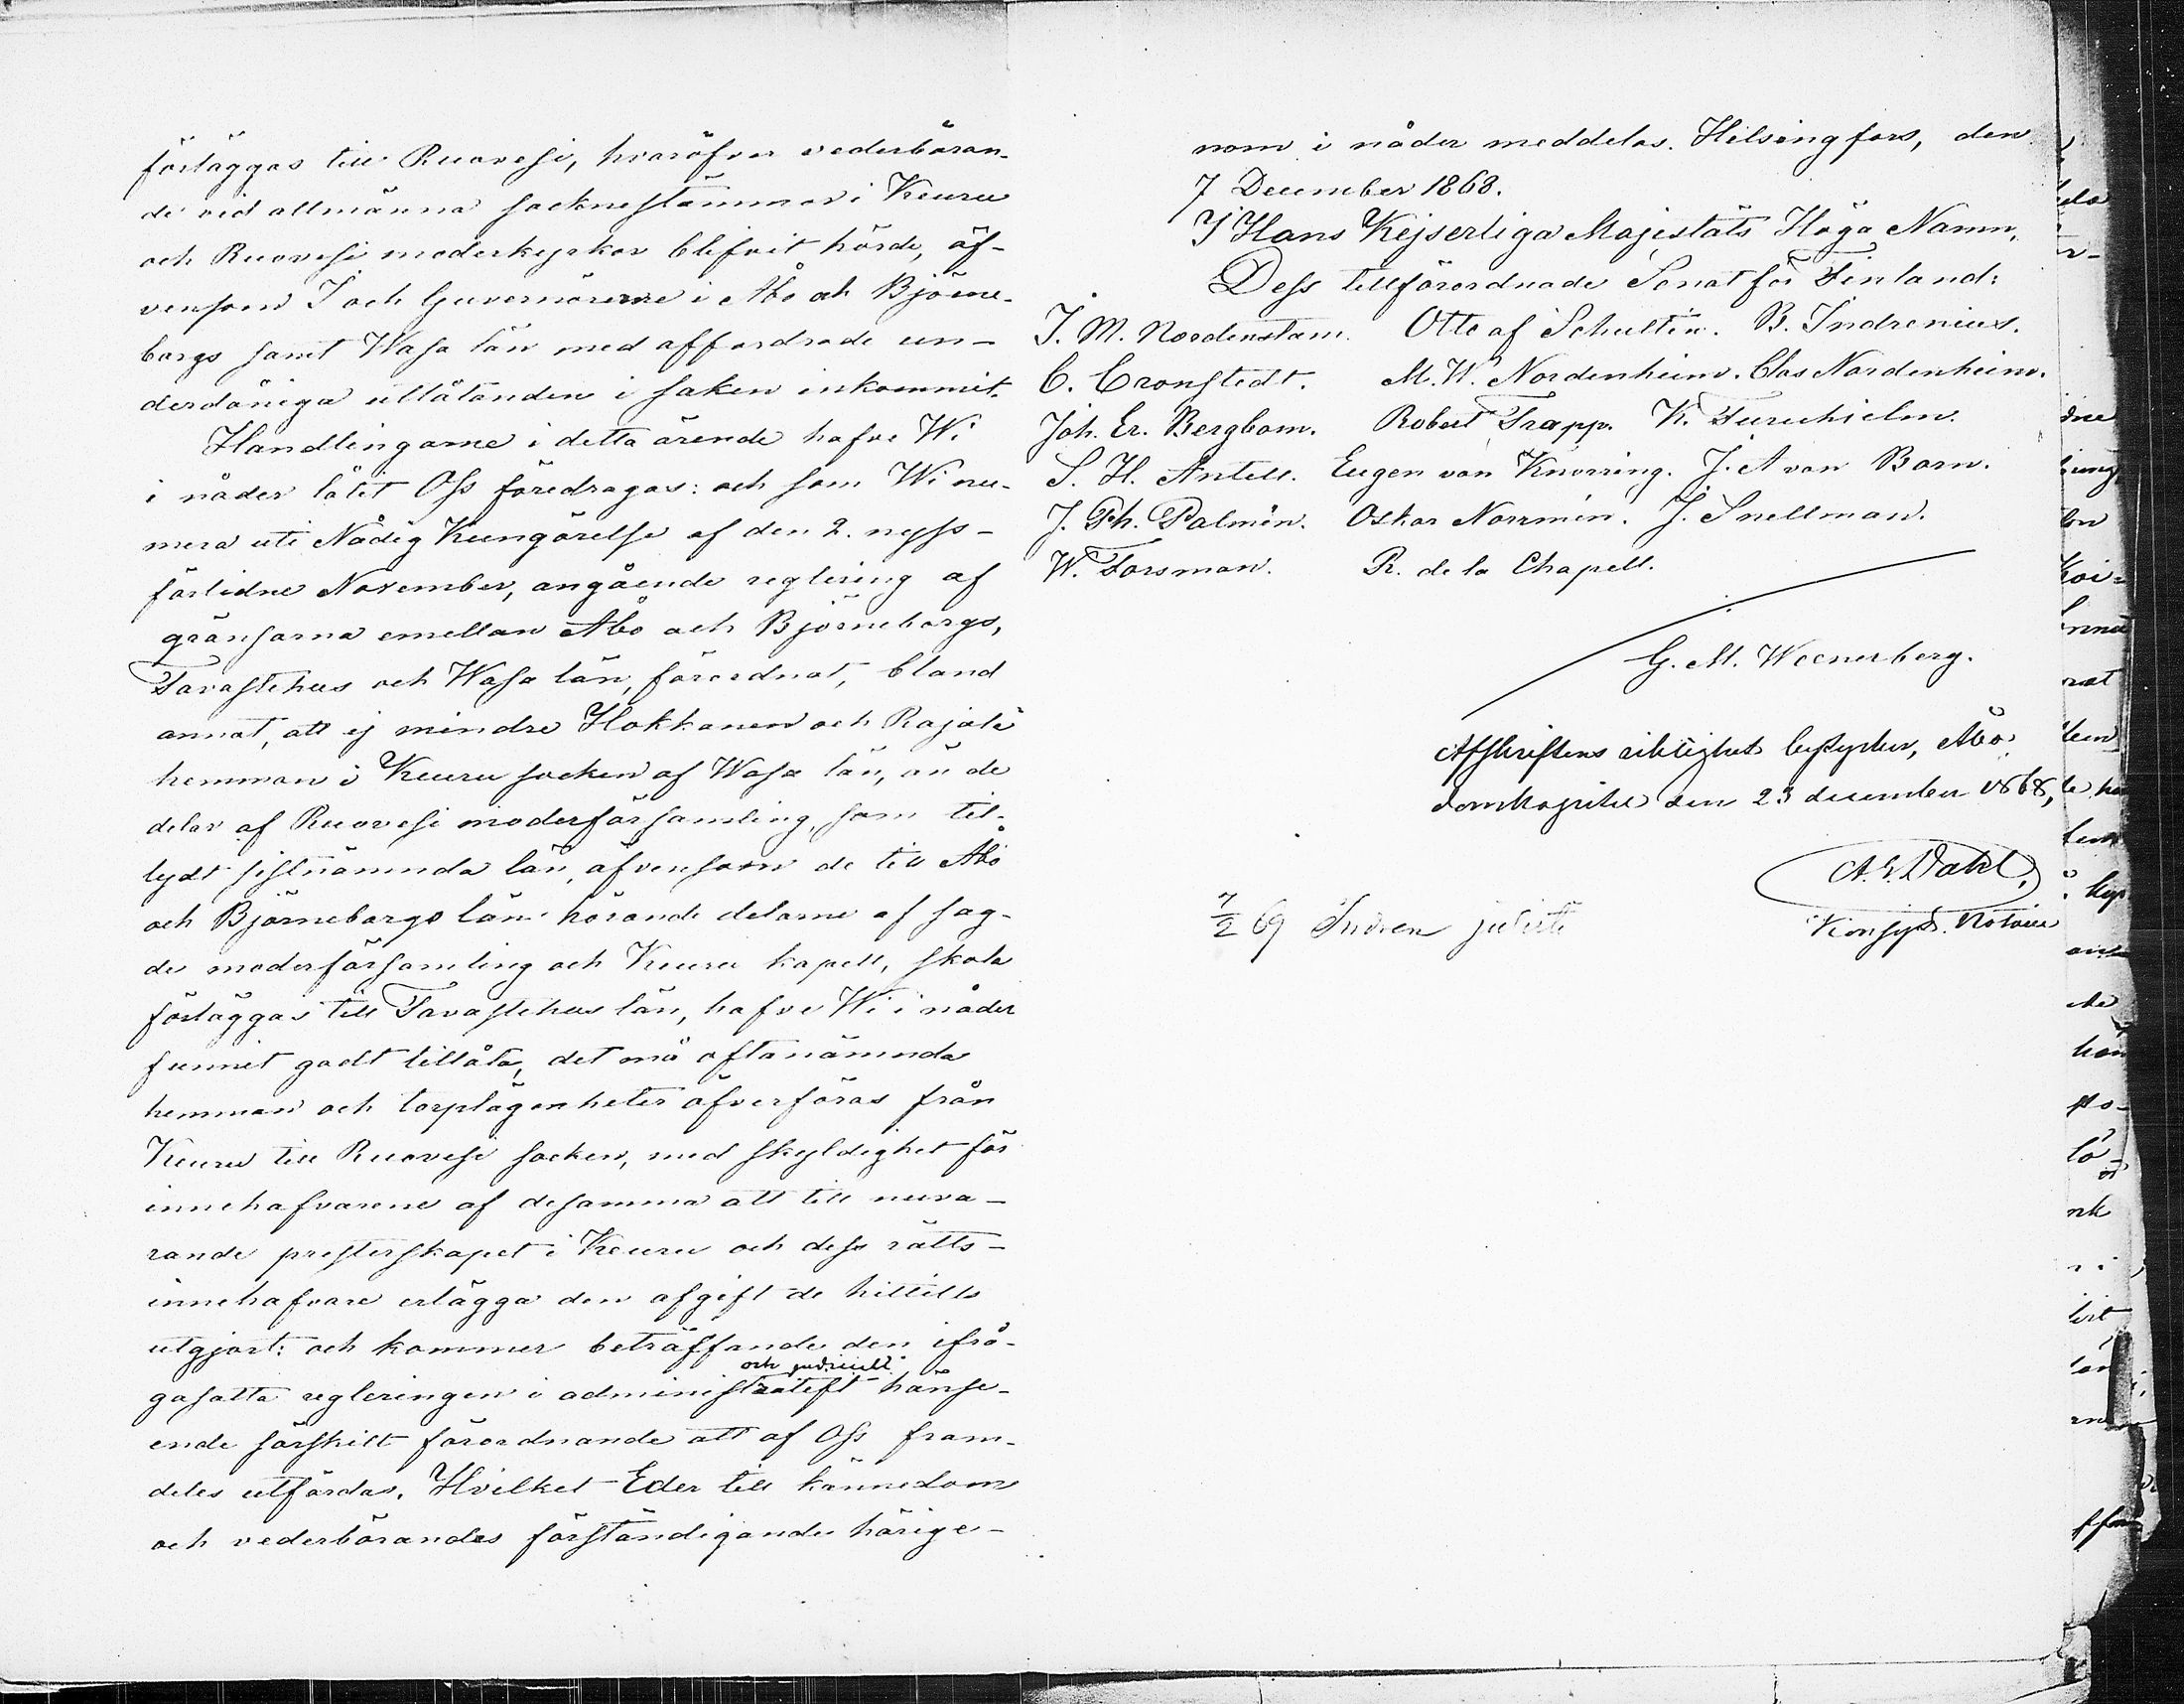 förläggas till Ruovesi, hvaröfver vederböran-
de vid allmänna socknestämmor i Keuru
och Ruovesi moderkyrkor blifvit hörde, äf-
vensom I och Guvernörerne i Åbo och Björne-
borgs samt Wasa län med affordrade un-
derdåniga utlåtanden i saken inkommit.
Handlingarne i detta ärende hafve Wi
i nåder låtit Oss föredragas: och som Wi nu-
mera uti Nådig Kungörelse af den 2. nyss-
förlidne November, angående reglering af
gränsarna emellan Åbo och Björneborgs,
Tavastehus och Wasa län, förordnat, bland
annat, att ej mindre Hokkanen och Rajalä
hemman i Keuru socken af Wasa län, än de
delar af Ruovesi moderförsamling, som til-
lydt sistnämnda län, äfvensom de till Åbo
och Björneborgs län hörande delarne af sag-
de moderförsamling och Keuru kapell, skola
förläggas till Tavastehus län, hafve Wi i nåder
funnit godt tillåta, det må oftanämnda
hemman och torplägenheter öfverföras från
Keuru till Ruovesi socken, med skyldighet för
innehafvarene af desamma att till nuva-
rande presterskapet i Keuru och dess rätts-
innehafvare erlägga den afgift de hittills
utgjort: och kommer beträffande den ifrå-
gasatta regleringen i administratift och judiciellt hänse-
ende särskilt förordnande att af Oss fram-
deles utfärdas. Hvilket Eder till kännedom
och vederbörandes förständigande härige-
nom i nåder meddelas. Helsingfors, den
7 December 1868.
I Hans Kejserliga Majestäts Höga Namn,
Dess tillförordnade Senat för Finland:
J. M. Nordenstam. Otto af Schultén. B. Indrenius.
C. Cronstedt. M. W. Nordenheim. Clas Nordenheim.
Joh. Er. Bergbom. Robert Trapp. K. Furuhielm.
S. H. Antell. Eugen von Knorring. J. A von Born.
J. Ph. Palmén. Oskar Norrmén. J. Snellman.
W. Forsman. R. de la Chapell.
G. M. Weenerberg.
Afskriftens riktighet betyger, Åbo
domkapitel den 23 december 1868,
A. E. Dahl,
Konsist. Notarie
7/2 69 Indren